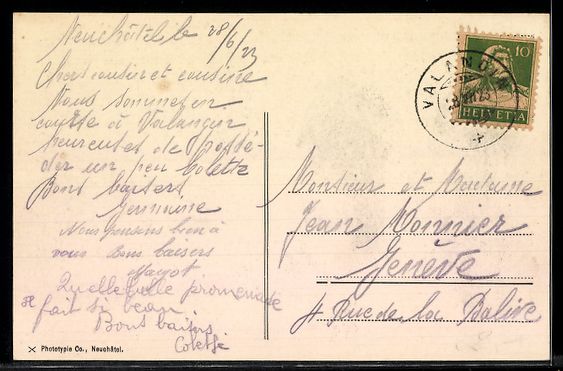 Neuchâtel le 28/6/23
Chers cousin et cousine
Nous sommes en
course à Valangin
heureuses de possé-
der un peu Colette
Bons baisers
Germaine
Nous pensons bien à
vous Bons baisers
Quelle belle promenade
il fait si beau
Bons baisers
Colette
Phototypie Co., Neuchâtel.
10
HELVETIA
VALANGIN
Monsieur et Madame
Jean Monnier
Genève
4 Rue de la